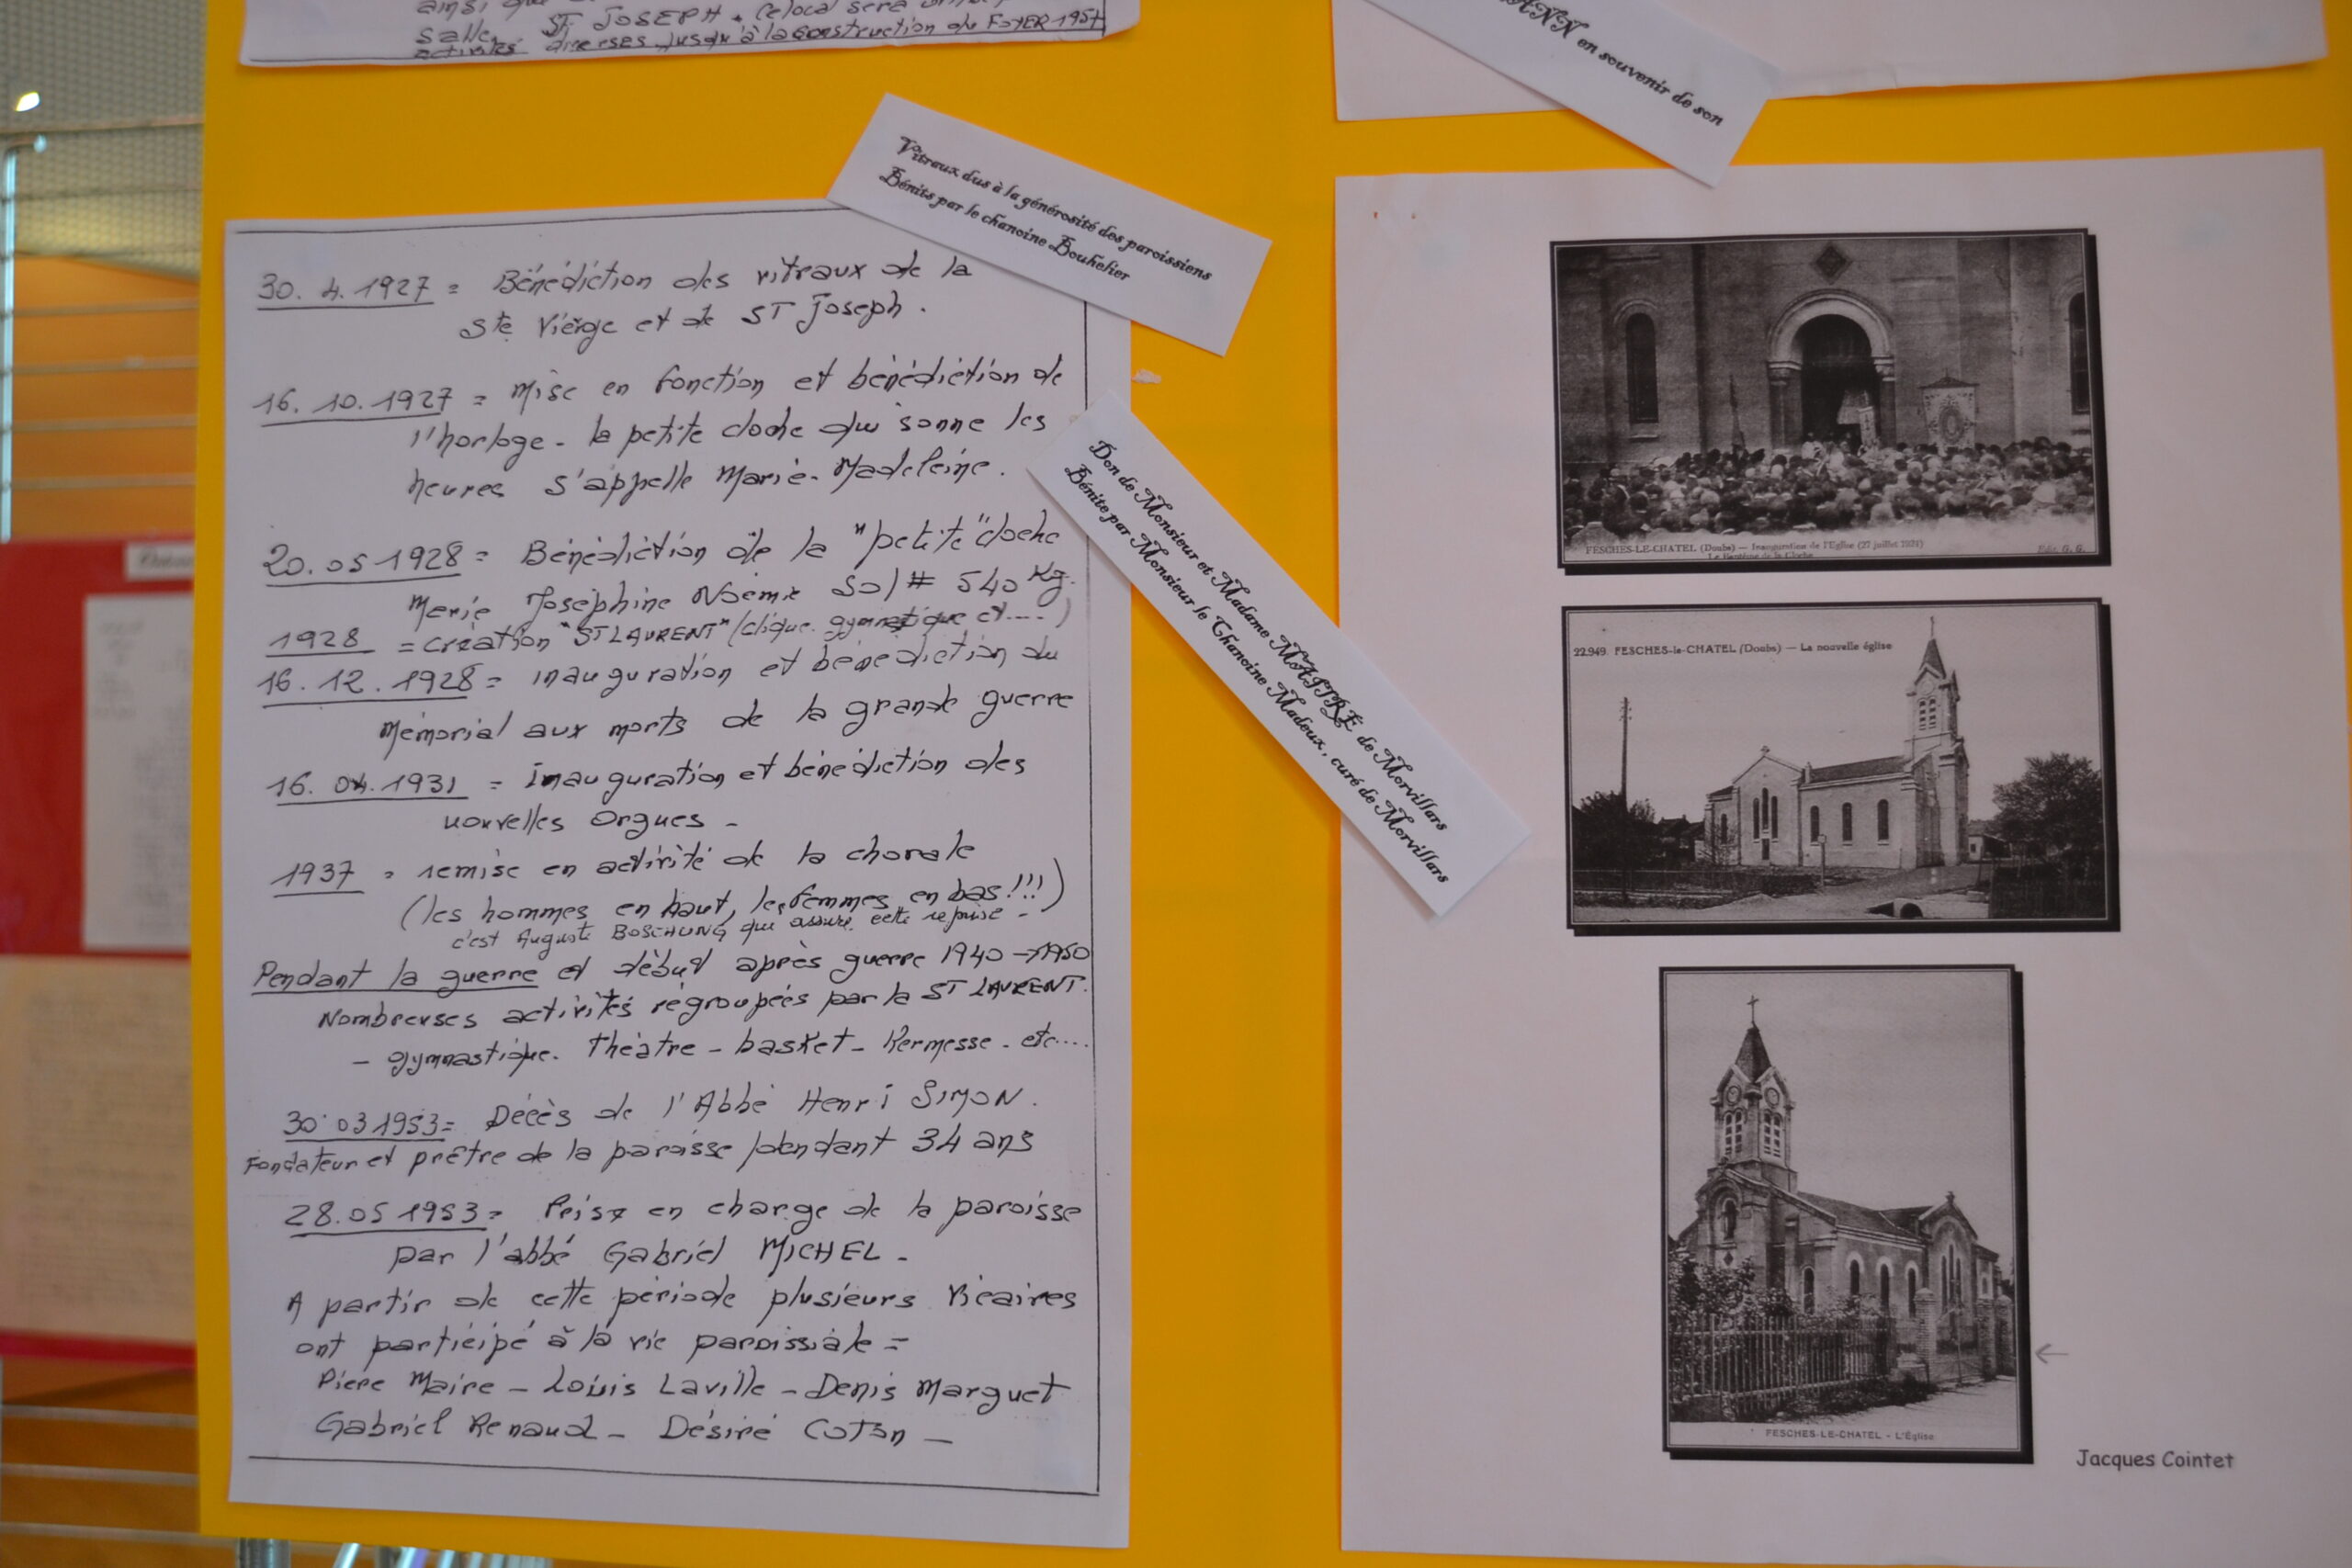 ainsi que
salle, ST. JOSEPH. Ce local sera
activités diverses jusqu'à la construction du FOYER 1957
ANN en souvenir de son
Vitraux dus à la générosité des paroissiens
Bénits par le chanoine Bouhelier
30. 4. 1927 = Bénédiction des vitraux de la
Ste Vierge et de ST Joseph.
16. 10. 1927 = Mise en fonction et bénédiction de
l'horloge - la petite cloche qui sonne les
heures s'appelle Marie-Madeleine.
20. 05 1928 = Bénédiction de la "petite" cloche
Marie Joséphine Noémie Sol # 540 Kg.
1928 = création "ST LAURENT" (clique gymnastique et....)
16. 12. 1928 = inauguration et bénédiction du
Mémorial aux morts de la grande guerre
16. 04. 1931 = inauguration et bénédiction des
nouvelles Orgues -
1937 = remise en activité de la chorale
(les hommes en haut, les femmes en bas!!!)
c'est Auguste BOSCHUNG qui assure cette reprise -
Pendant la guerre et début après guerre 1940 → 1950
Nombreuses activités regroupées par la ST LAURENT.
- gymnastique. Théâtre - basket - Kermesse - etc....
30 03 1953 = Décès de l'Abbé Henri SIMON.
Fondateur et prêtre de la paroisse pendant 34 ans
28. 05 1953 = Prise en charge de la paroisse
par l'abbé Gabriel MICHEL -
A partir de cette période plusieurs Vicaires
ont participé à la vie paroissiale =
Piere Maire - Louis Laville - Denis Marguet
Gabriel Renaud - Désiré Coton -
Don de Monsieur et Madame MAITRE de Morvillars
Bénite par Monsieur le Chanoine Madeux, curé de Morvillars
FESCHES-LE-CHATEL (Doubs) — Inauguration de l'Eglise (27 juillet 1924)
Le Baptême de la Cloche
Edit. G. G.
22.949. FESCHES-le-CHATEL (Doubs) — La nouvelle église
FESCHES-LE-CHATEL - L'Église
Jacques Cointet